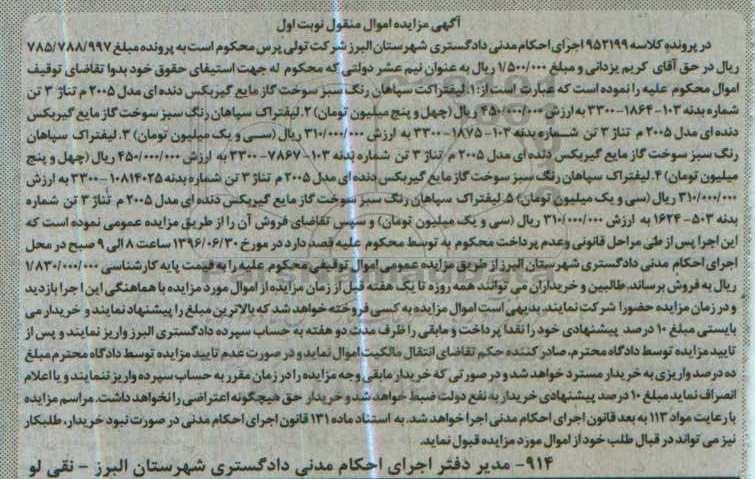 آگهی مزایده اموال منقول نوبت اول
در پرونده کلاسه ۹۵۲۱۹۹ اجرای احکام مدنی دادگستری شهرستان البرز شرکت تولی پرس محکوم است به پرونده مبلغ ۷۸۵/۷۸۸/۹۹۷
ریال در حق آقای کریم یزدانی و مبلغ ۱/۵۰۰/۰۰۰ ریال به عنوان نیم عشر دولتی که محکوم له جهت استیفای حقوق خود بدوا تقاضای توقیف
اموال محکوم علیه را نموده است که عبارت است از: ۱.لیفتراکت سپاهان رنگ سبز سوخت گاز مایع گیربکس دنده ای مدل ۲۰۰۵ م تناژ ۳ تن
شماره بدنه ۱۰۳-۱۸۶۴-۳۳۰۰ به ارزش ۴۵۰/۰۰۰/۰۰۰ ریال (چهل و پنج میلیون تومان) ۲.لیفتراک سپاهان رنگ سبز سوخت گاز مایع گیربکس
دنده ای مدل ۲۰۰۵ م تناژ ۳ تن شماره بدنه ۱۰۳-۱۸۷۵-۳۳۰۰ به ارزش ۳۱۰/۰۰۰/۰۰۰ ریال (سی و یک میلیون تومان) ۳.لیفتراک سپاهان
رنگ سبز سوخت گاز مایع گیربکس دنده ای مدل ۲۰۰۵ م تناژ ۳ تن شماره بدنه ۱۰۳-۷۸۶۷-۳۳۰۰ به ارزش ۴۵۰/۰۰۰/۰۰۰ ریال (چهل و پنج
میلیون تومان) ۴.لیفتراک سپاهان رنگ سبز سوخت گاز مایع گیربکس دنده ای مدل ۲۰۰۵ م تناژ ۳ تن شماره بدنه ۱۰۸۱۴۰۲۵-۳۳۰۰ به ارزش
۳۱۰/۰۰۰/۰۰۰ ریال (سی و یک میلیون تومان) ۵.لیفتراک سپاهان رنگ سبز سوخت گاز مایع گیربکس دنده ای مدل ۲۰۰۵ م تناژ ۳ تن شماره
بدنه ۵۰۳-۱۶۲۴ به ارزش ۳۱۰/۰۰۰/۰۰۰ ریال (سی و یک میلیون تومان) و سپس تقاضای فروش آن را از طریق مزایده عمومی نموده است که
این اجرا پس از طی مراحل قانونی و عدم پرداخت محکوم به توسط محکوم علیه قصد دارد در مورخ ۱۳۹۶/۰۶/۳۰ ساعت ۸ الی ۹ صبح در محل
اجرای احکام مدنی دادگستری شهرستان البرز از طریق مزایده عمومی اموال توقیفی محکوم علیه را به قیمت پایه کارشناسی ۱/۸۳۰/۰۰۰/۰۰۰
ریال به فروش برساند. طالبین و خریداران می توانند همه روزه تا یک هفته قبل از زمان مزایده از اموال مورد مزایده با هماهنگی این اجرا بازدید
و در زمان مزایده حضورا شرکت نمایند. بدیهی است اموال مزایده به کسی فروخته خواهد شد که بالاترین مبلغ را پیشنهاد نمایند و خریدار می
بایستی مبلغ ۱۰ درصد پیشنهادی خود را نقدا پرداخت و مابقی را ظرف مدت دو هفته به حساب سپرده دادگستری البرز واریز نمایند و پس از
تایید مزایده توسط دادگاه محترم، صادر کننده حکم تقاضای انتقال مالکیت اموال نماید و در صورت عدم تایید مزایده توسط دادگاه محترم مبلغ
ده درصد واریزی به خریدار مسترد خواهد شد و در صورتی که خریدار مابقی وجه مزایده را در زمان مقرر به حساب سپرده واریز ننمایند و یا اعلام
انصراف نماید مبلغ ۱۰ درصد پیشنهادی خریدار به نفع دولت ضبط خواهد شد و خریدار حق هیچگونه اعتراضی را نخواهد داشت. مراسم مزایده
با رعایت مواد ۱۱۳ به بعد قانون اجرای احکام مدنی اجرا خواهد شد. به استناد ماده ۱۳۱ قانون اجرای احکام مدنی در صورت نبود خریدار، طلبکار
نیز می تواند در قبال طلب خود از اموال مورد مزایده قبول نماید.
۹۱۴- مدیر دفتر اجرای احکام مدنی دادگستری شهرستان البرز - نقی لو